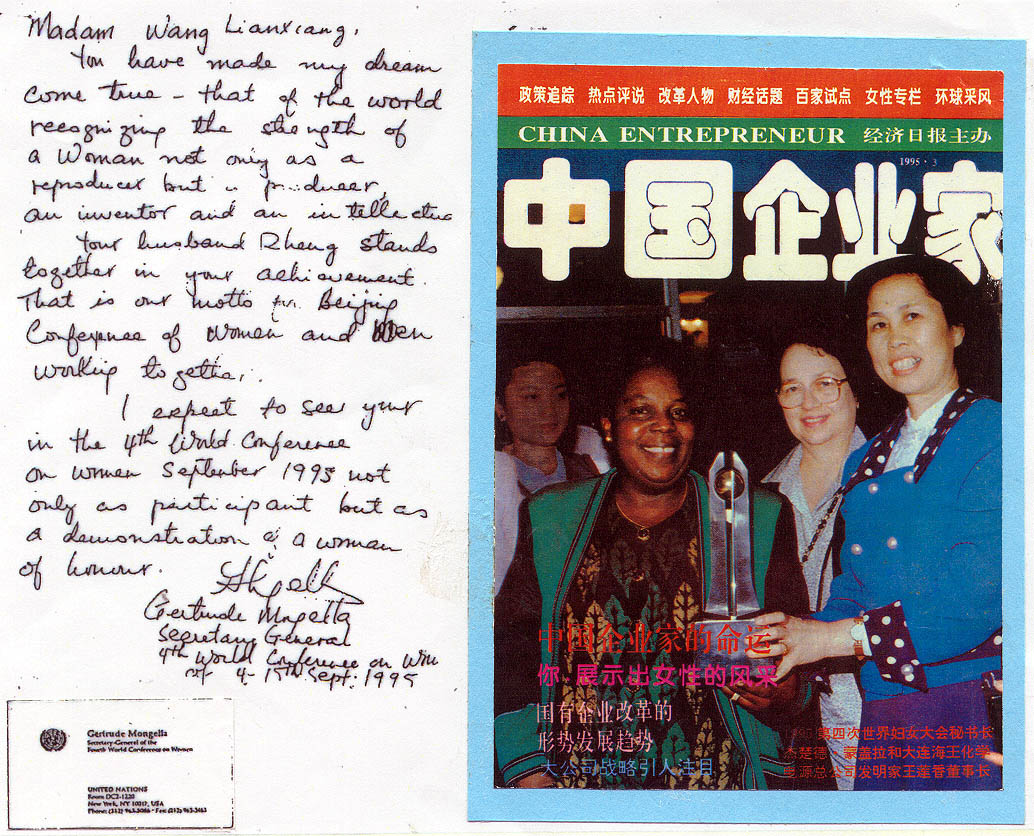 Madam Wang Lianxiang,
You have made my dream
come true - that of the world
recognizing the strength of
a Woman not only as a
reproducer but a producer,
an inventor and an intellectua
Your husband Zheng stands
together in your achievement.
That is our motto for Beijing
Conference of Women and Men
working together.
I expect to see your
in the 4th World Conference
on women September 1995 not
only as participant but as
a demonstration of a woman
of honour.
Gertrude Mongella
Secretary General
4th World Conference on
of 4-15th Sept. 1995
Gertrude Mongella
Secretary-General of the
Fourth World Conference on Women
UNITED NATIONS
Room DC2-1220
New York, NY 10017, USA
Phone: (212) Fax: (212) 963-3463
政策追踪 热点评说 改革人物 财经话题 百家试点 女性专栏 环球采风
CHINA ENTREPRENEUR 经济日报主办
1995·3
中国企业家
中国企业家的命运
你,展示出女性的风采
国有企业改革的
形势发展趋势
大公司战略引人注目
1995第四次世界妇女大会秘书长
杰楚德·蒙盖拉和大连海王化学
电源总公司发明家王莲香董事长